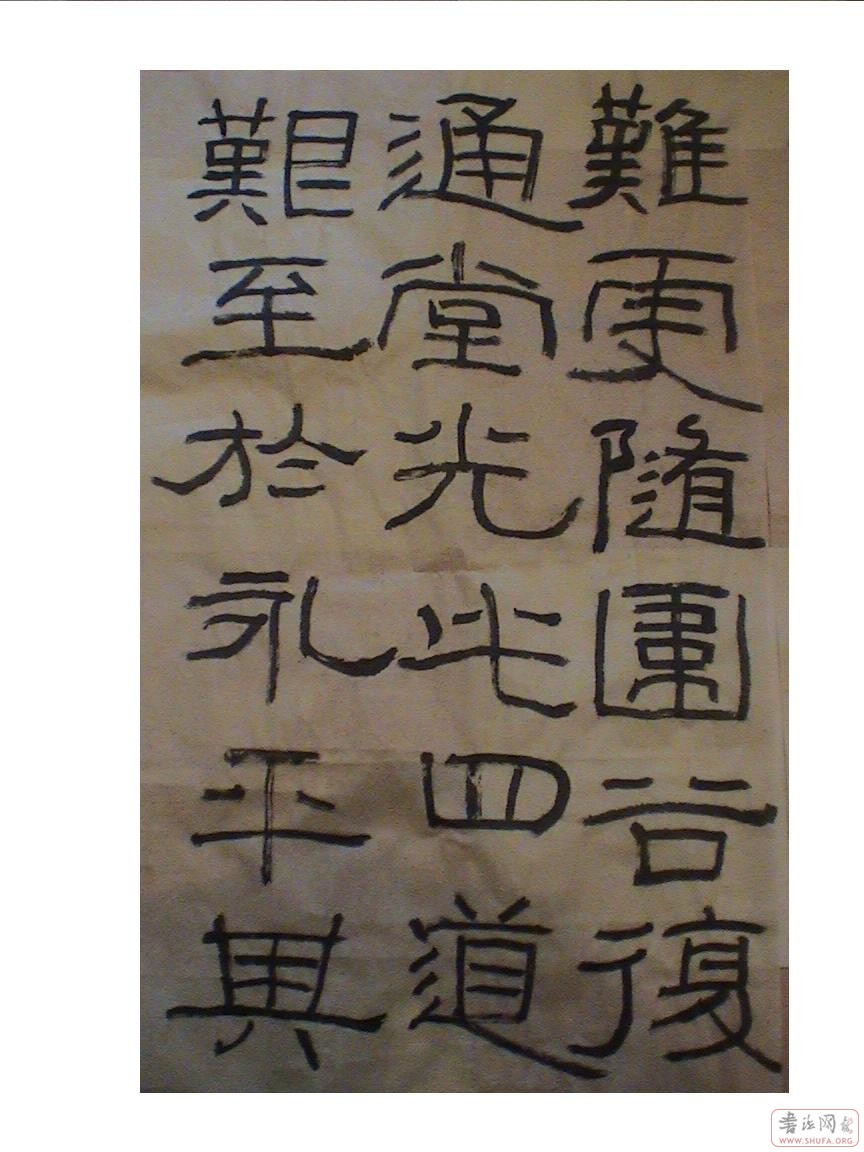 難更隨圍谷復
通堂光此四道
艱至於永平其
书法网
WWW.SHUFA.ORG